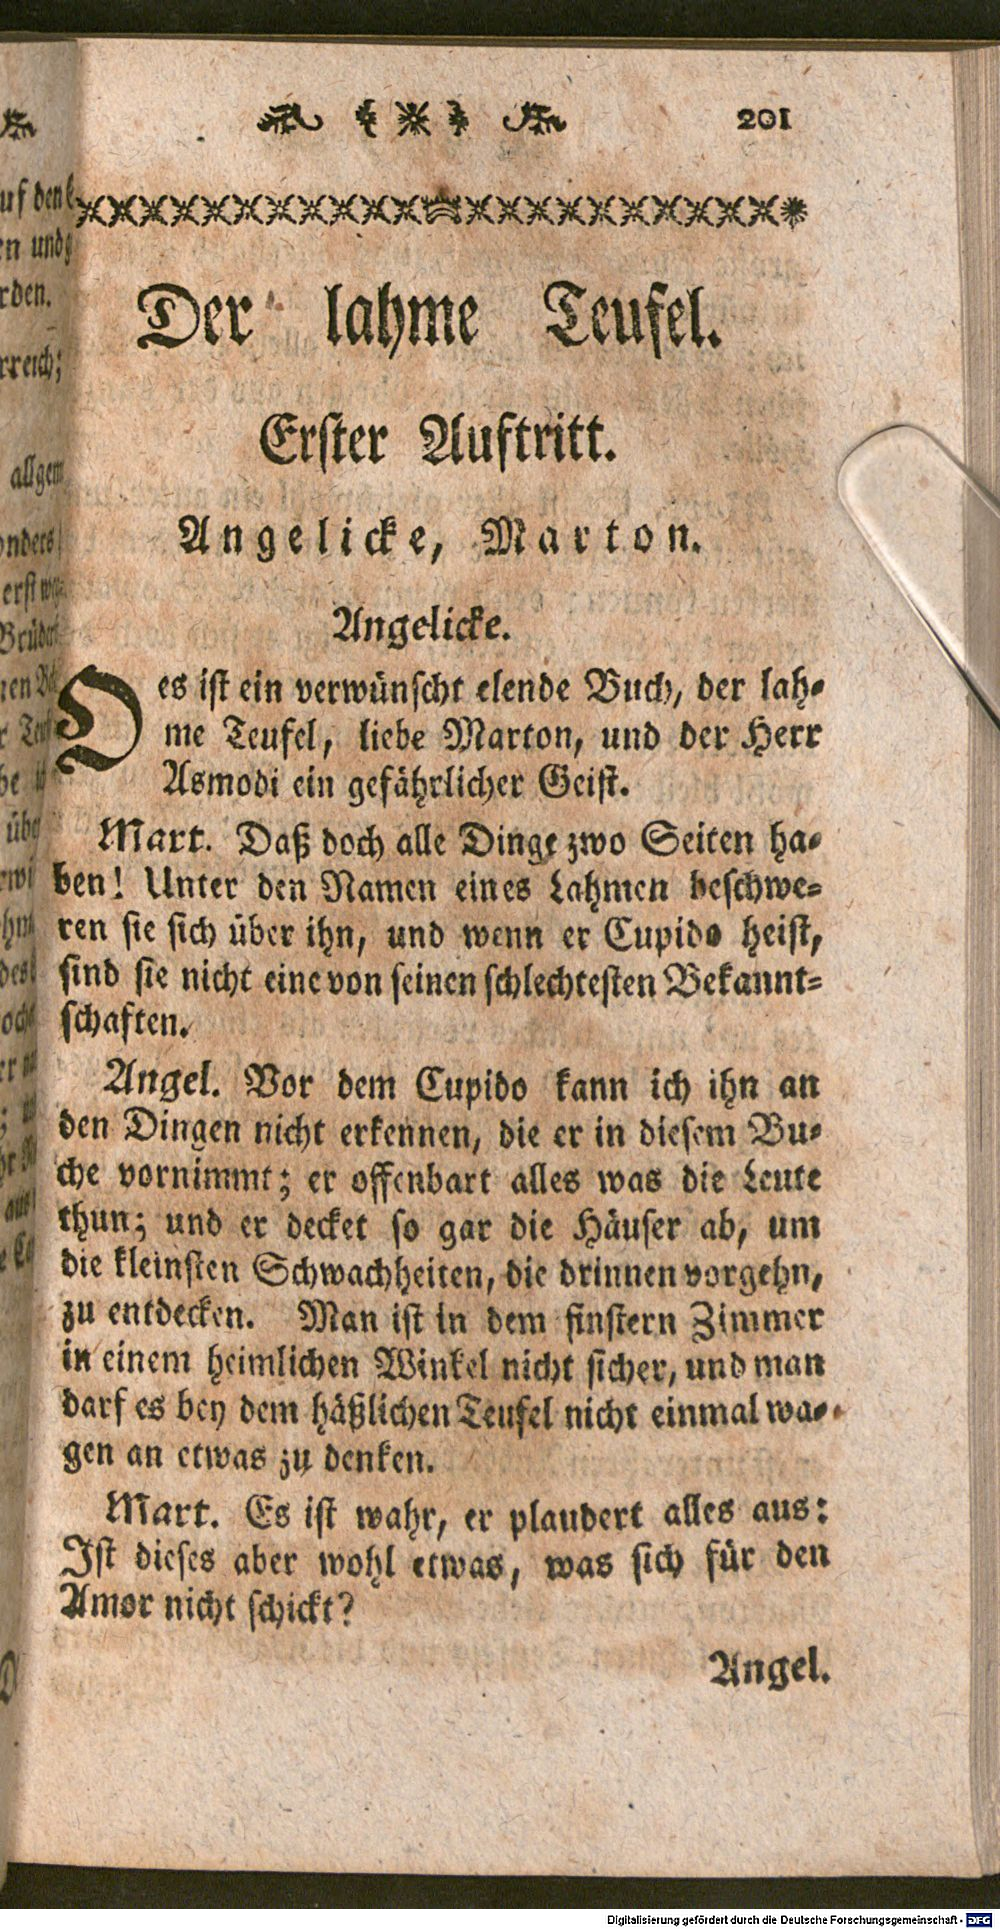 201
Der lahme Teufel.
Erster Auftritt.
Angelicke, Marton.
Angelicke.
O es ist ein verwünscht elende Buch, der lah-
me Teufel, liebe Marton, und der Herr
Asmodi ein gefährlicher Geist.
Mart. Daß doch alle Dinge zwo Seiten ha-
ben! Unter den Namen eines Lahmen beschwe-
ren sie sich über ihn, und wenn er Cupido heist,
sind sie nicht eine von seinen schlechtesten Bekannt-
schaften.
Angel. Vor dem Cupido kann ich ihn an
den Dingen nicht erkennen, die er in diesem Bu-
che vornimmt; er offenbart alles was die Leute
thun; und er decket so gar die Häuser ab, um
die kleinsten Schwachheiten, die drinnen vorgehn,
zu entdecken. Man ist in dem finstern Zimmer
in einem heimlichen Winkel nicht sicher, und man
darf es bey dem häßlichen Teufel nicht einmal wa-
gen an etwas zu denken.
Mart. Es ist wahr, er plaudert alles aus:
Ist dieses aber wohl etwas, was sich für den
Amor nicht schickt?
Angel.
Digitalisierung gefördert durch die Deutsche Forschungsgemeinschaft - DFG